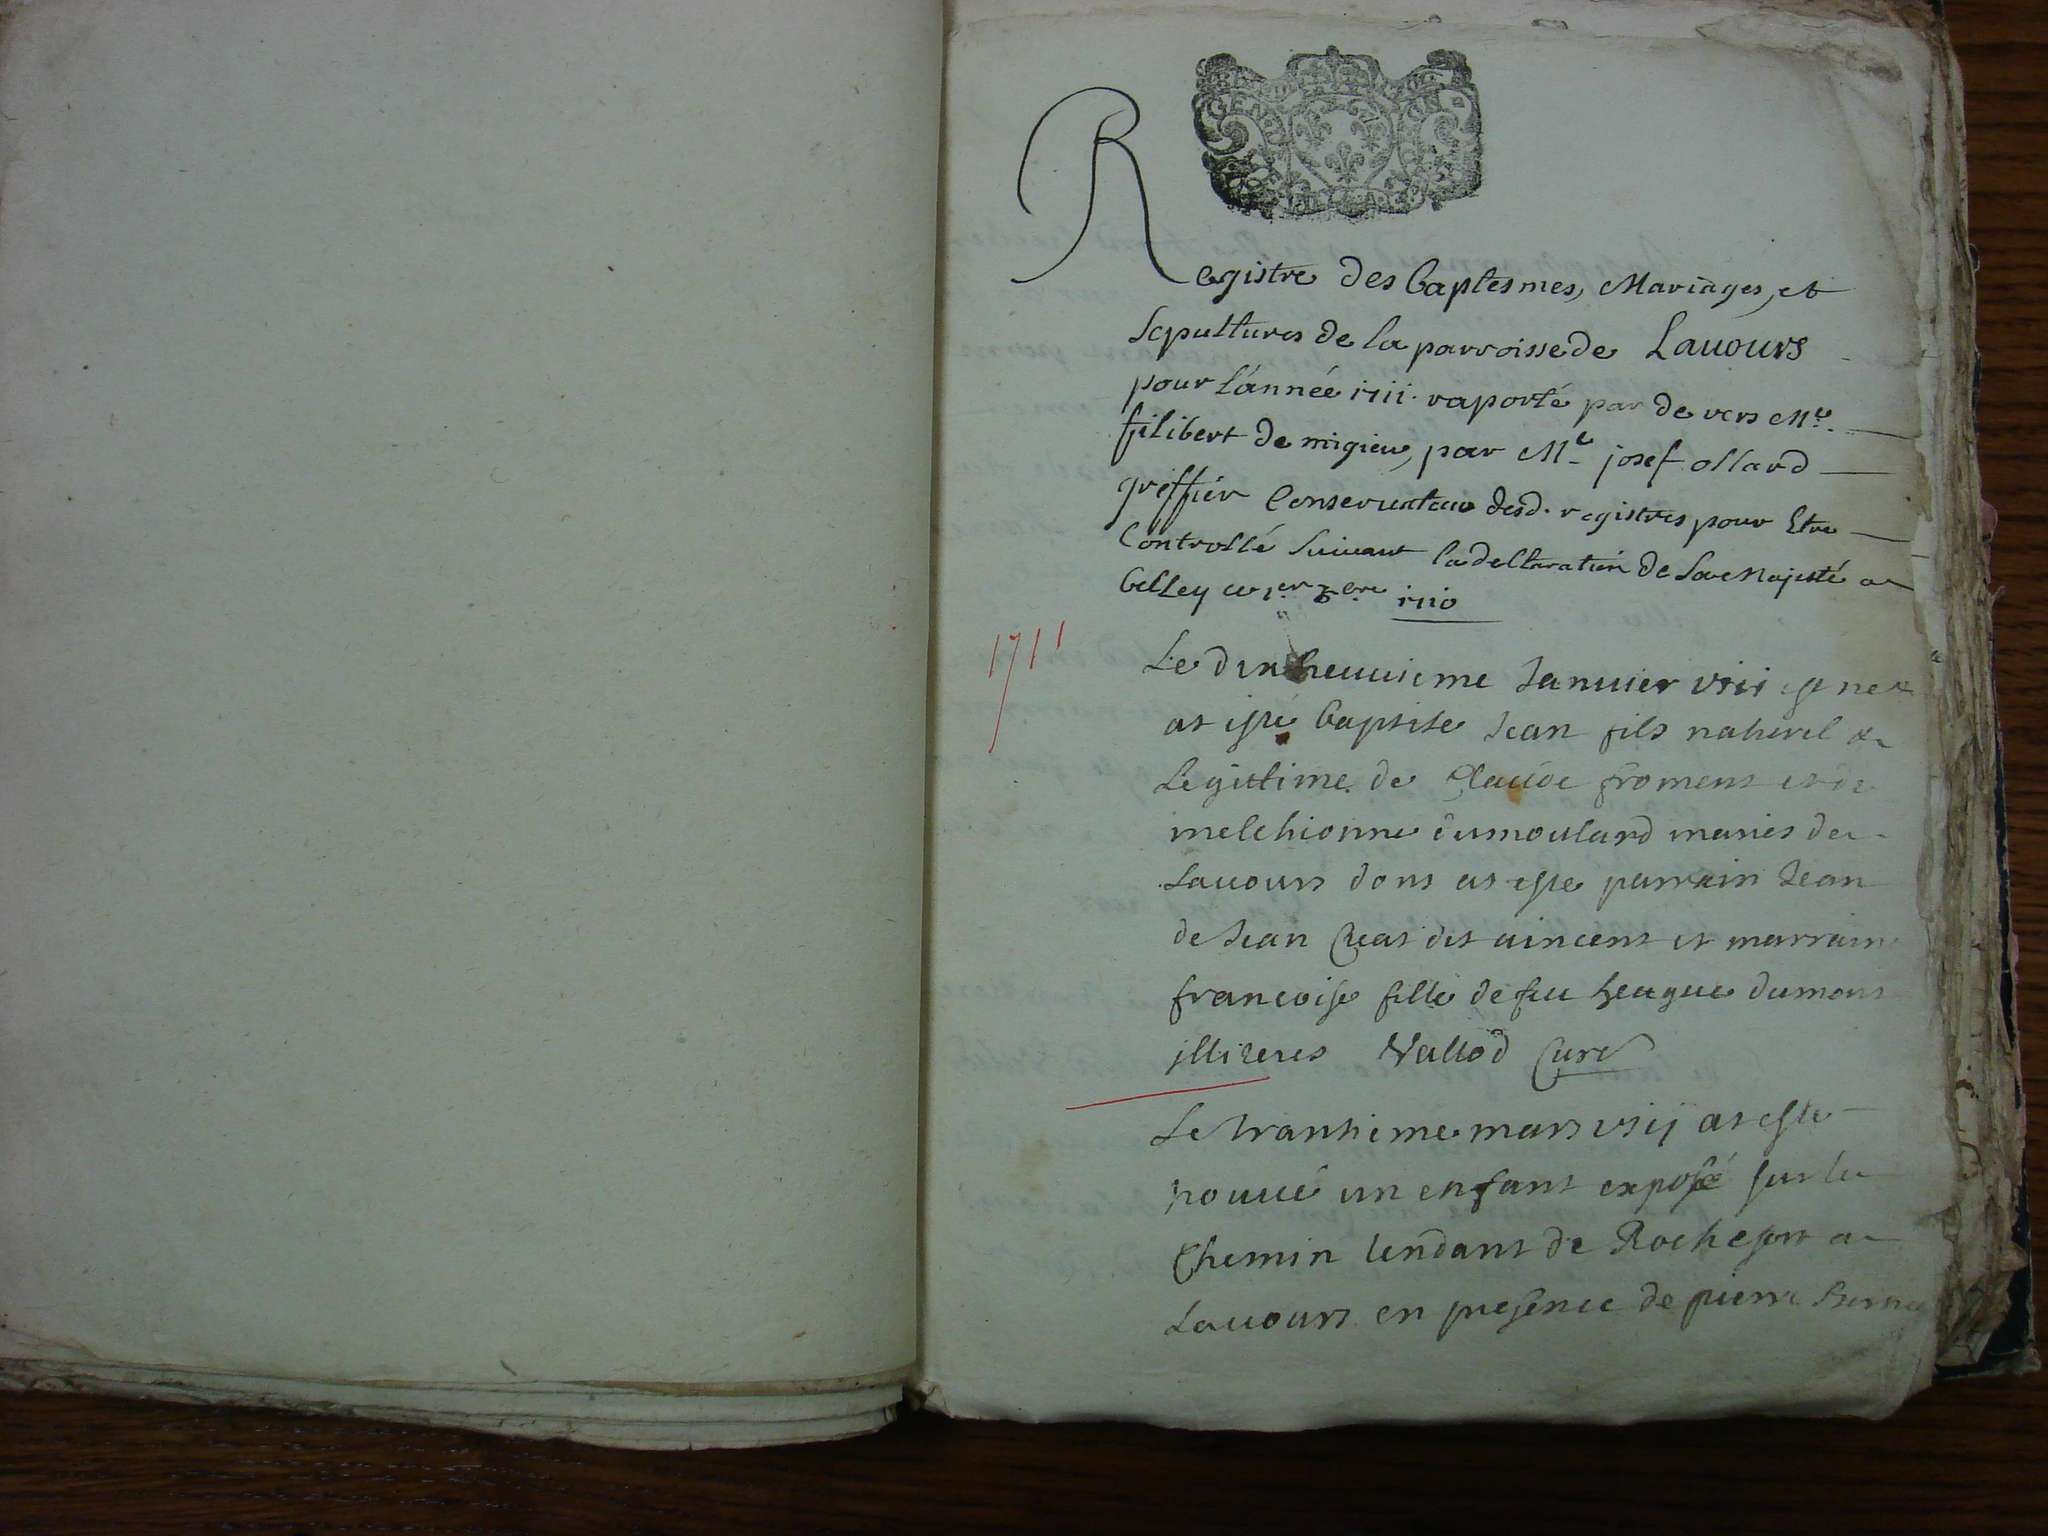 GEN
Registre des baptesmes, Mariages, et
Sepultures de la parroisse de Lauours
pour L'année 1711. raporté par de vers Me.
filibert de migieu, par Me. josef ollard
greffier Conseruateur desd. registres pour Etre
Controllé Suiuant la declaration de Sa Majesté a
belley ce 1er xbre 1710
1711
Le dixheuuisime Januier est ne
at esté baptise Jean fils naturel &
Legittime de Claude froment et de
melchionne dumoulard maries de
Lauours dont at este parrain Jean
de Jean Cueat dit uincent et marraine
francoise fille de feu heugue dumont
Curé
Le trantieme mars at este
trouué un enfant exposé sur le
Chemin tendant de Rochefort a
Lauours en presence de pierre